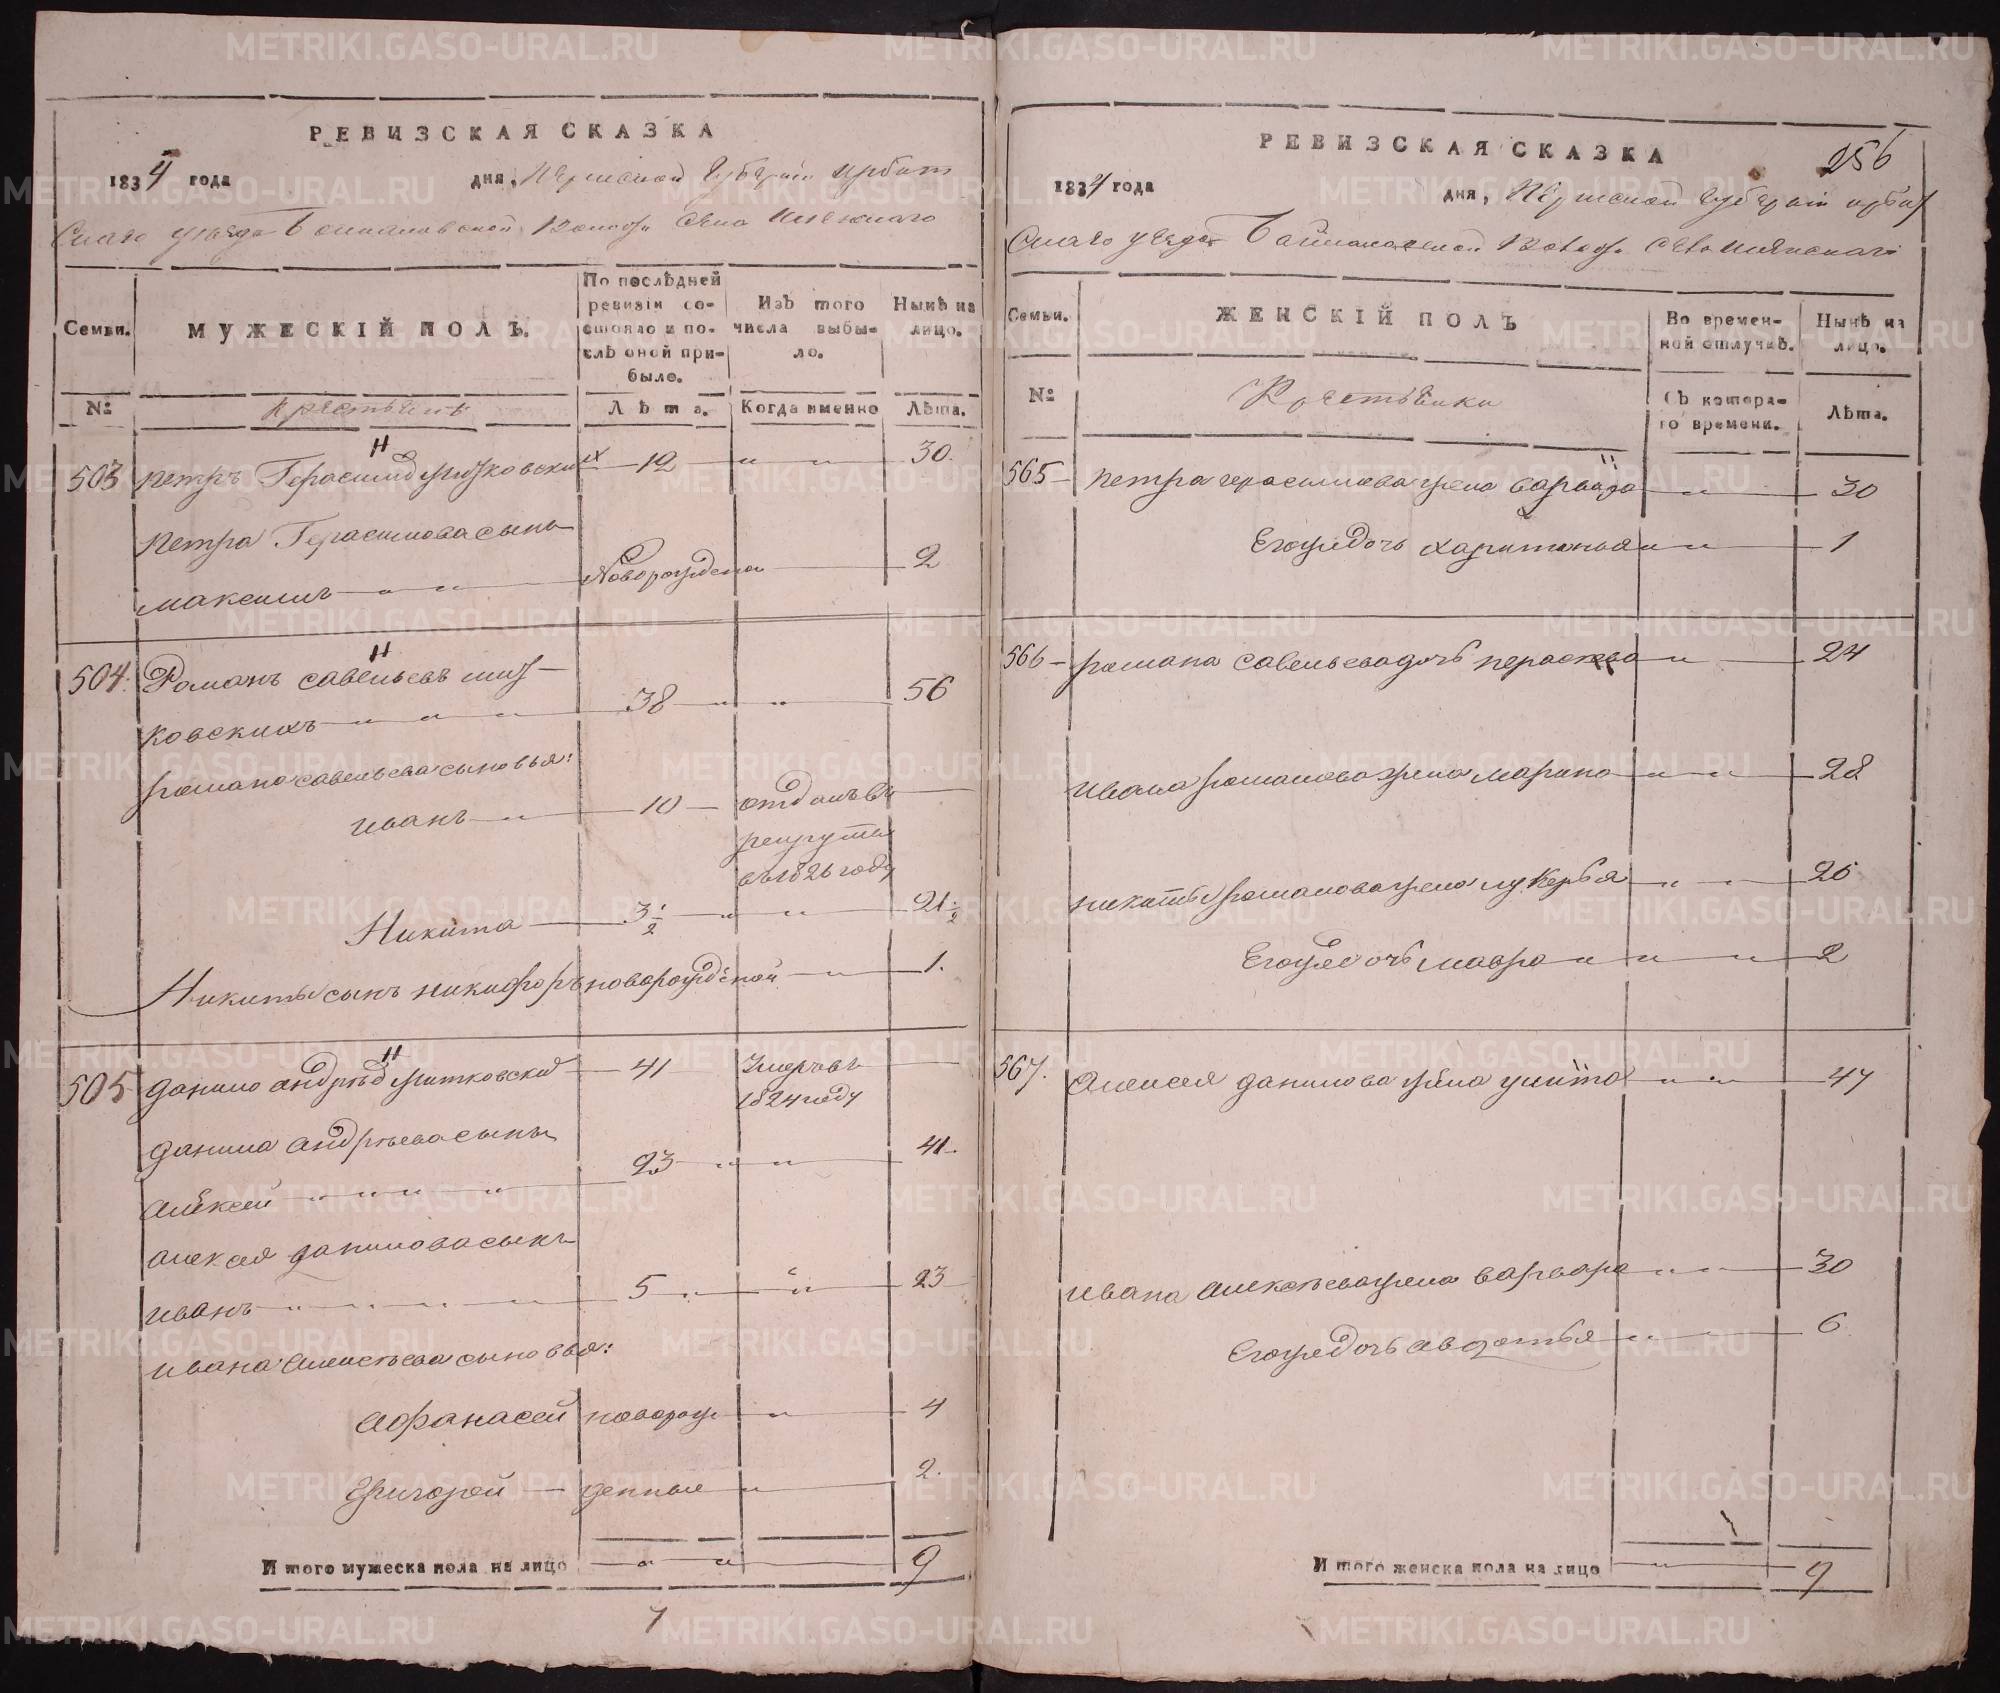 РЕВИЗСКАЯ СКАЗКА
1834 года дня, Пермской губернии Ирбит
скаго уезда Волости Села
Семьи.
МУЖЕСКІЙ ПОЛЪ.
По послѣдней ревизіи со-
стояло и по-
слѣ оной при-
было.
Изъ того числа выбы-
ло.
Нынѣ на лицо.
№ Крестьяне Лѣта. Когда именно Лѣта.
503 Петръ Герасимовъ 12 " " 30.
Петра Герасимова сынъ
Максимъ " " Новорожден 2
504. Романъ Савельевъ
ковскихъ " " " 38 " " 56
Романа Савельева сыновья:
Иванъ " 10 отданъ въ
рекруты
въ 1826 году
Никита 3 1/2 " " 21 1/2
Никиты сынъ Никифоръ новорожденой " 1.
505 Данило Андреевъ 41 Умеръ въ
1824 году
Данила Андреева сынъ
Алексей " " " " 23 " " 41.
Алексея Данилова сынъ
Иванъ " " " " " 5 " " 23
Ивана Алексеева сыновья:
Афанасей новорож " 4
Григорей денные " 2.
И того мужеска пола на лицо " " 9
РЕВИЗСКАЯ СКАЗКА 256
1834 года дня, Пермской губернии Ирбит
скаго уезда Волости
Семьи.
ЖЕНСКІЙ ПОЛЪ
Во времен-
ной отлучкѣ.
Нынѣ на лицо.
№ Крестьянки Съ котора-
го времени. Лѣта.
565 Петра Герасимова жена Варвара " 30
Его же дочь Харитонья " " 1
566 Романа Савельева дочь Парасковья " 24
Ивана Романова жена Марина " " 28
Никиты Романова жена Лукерья " " 26
Его же дочь Мавра " " " 2
567. Алексея Данилова жена Улита " " 47
Ивана Алексеева жена Варвара " " 30
Его же дочь Авдотья " " 6
И того женска пола на лицо " 9
METRIKI.GASO-URAL.RU